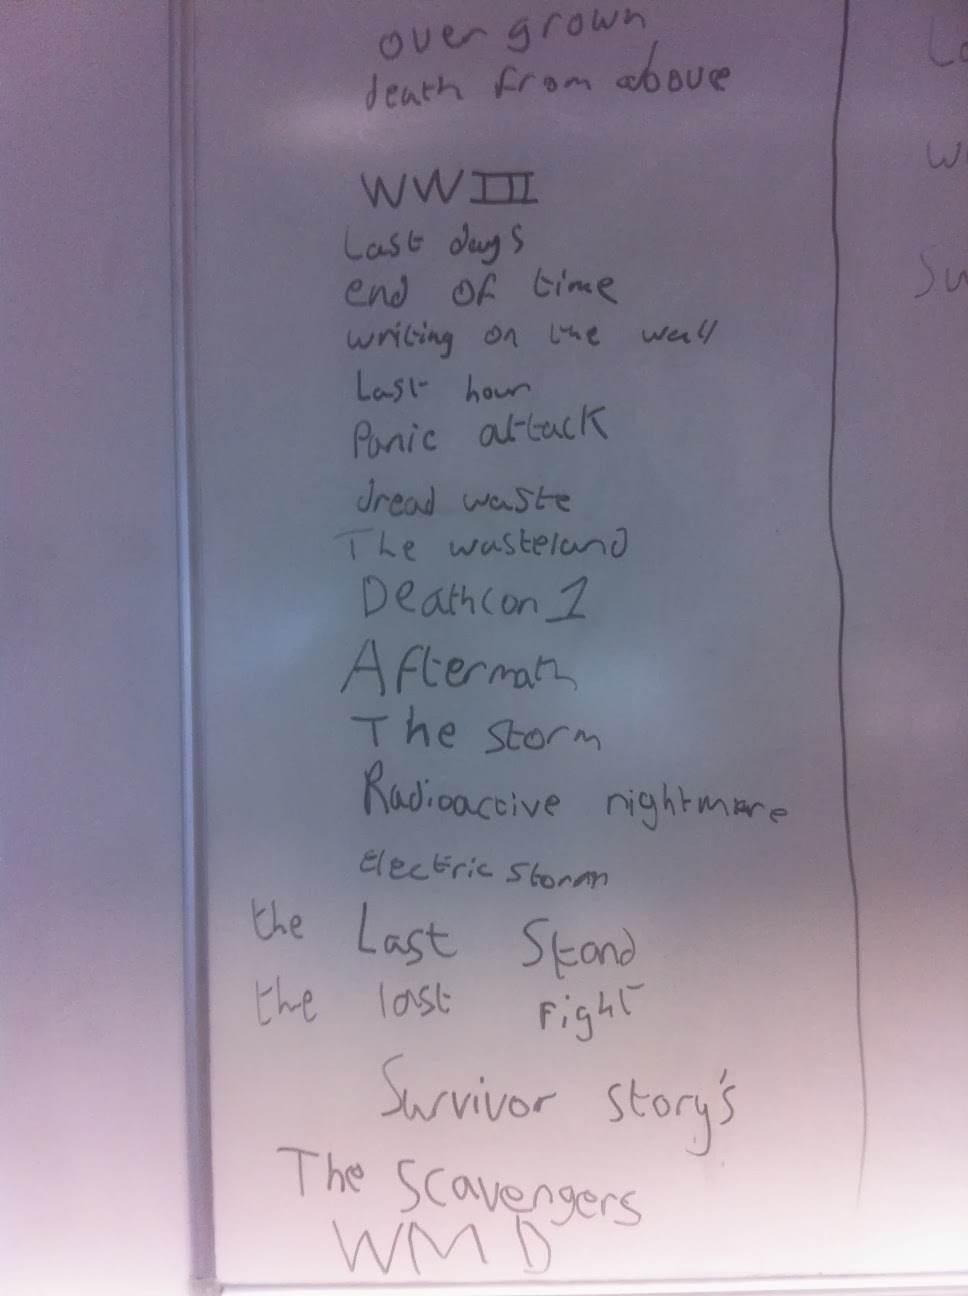 over grown
death from above
WW III
Last days
end of time
writing on the wall
Last hour
Panic attack
dread waste
The wasteland
Deathcon 1
Aftermath
The storm
Radioactive nightmare
Electric storm
the Last Stand
the last Fight
Survivor story's
The Scavengers
WMD